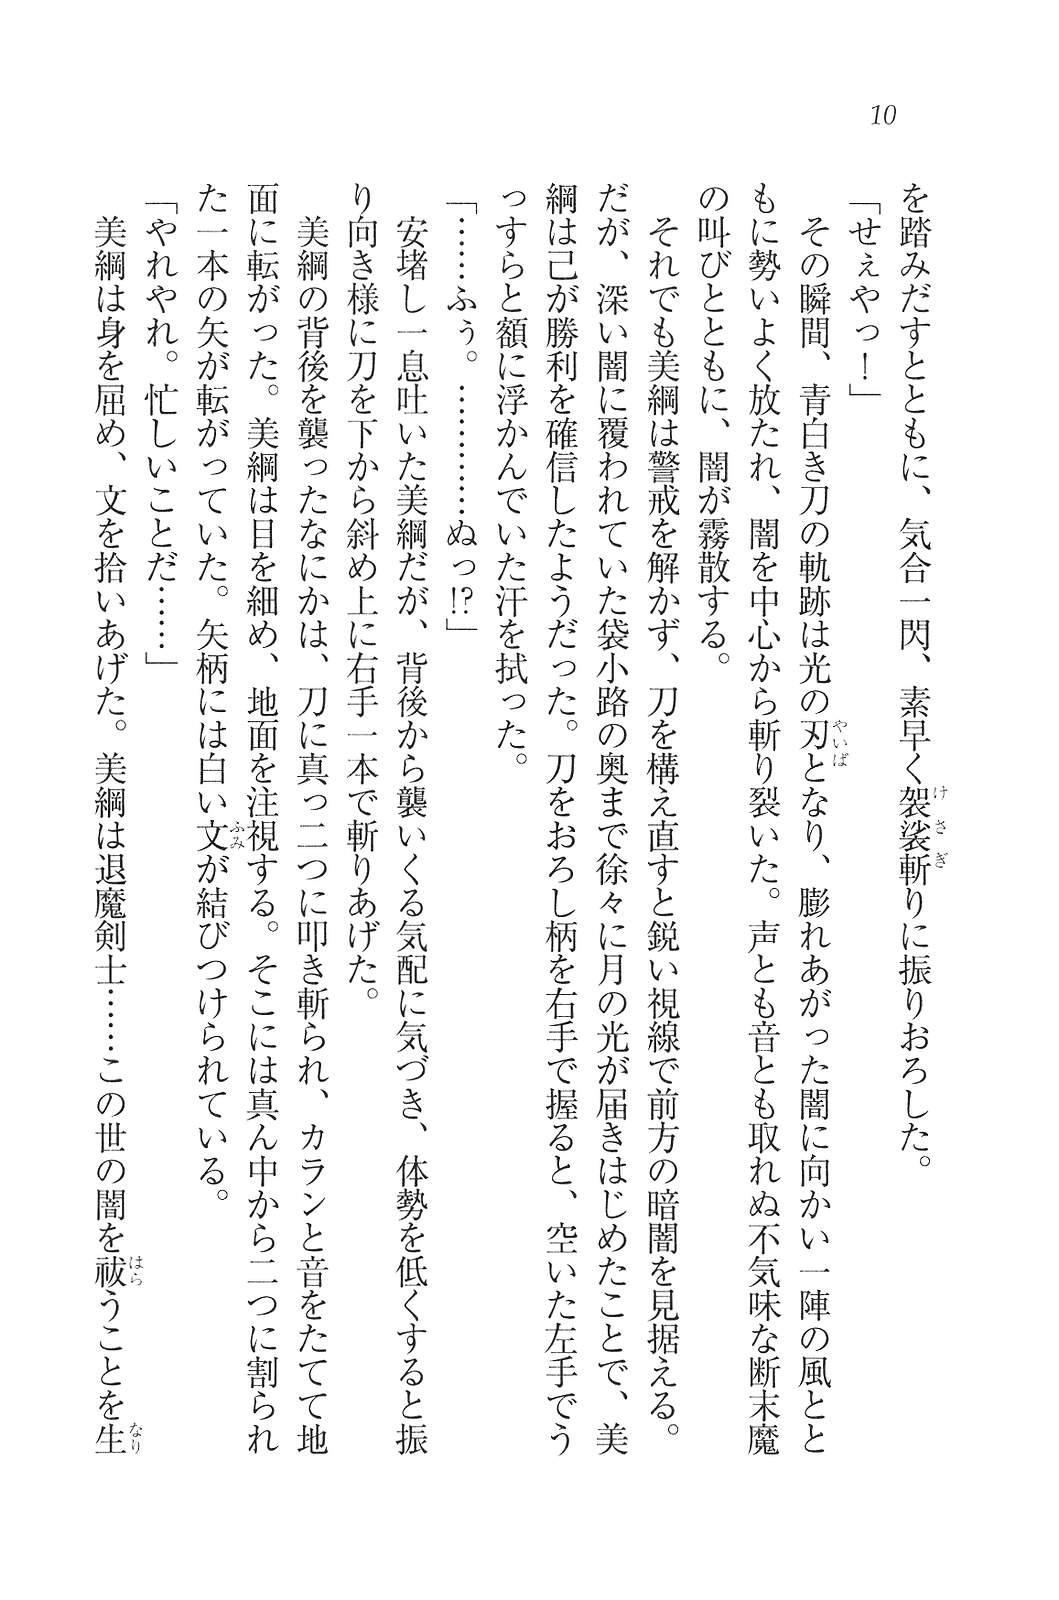 10
を踏みだすとともに、気合一閃、素早く袈裟斬りに振りおろした。
「せぇやっ！」
　その瞬間、青白き刀の軌跡は光の刃となり、膨れあがった闇に向かい一陣の風とと
もに勢いよく放たれ、闇を中心から斬り裂いた。声とも音とも取れぬ不気味な断末魔
の叫びとともに、闇が霧散する。
　それでも美綱は警戒を解かず、刀を構え直すと鋭い視線で前方の暗闇を見据える。
だが、深い闇に覆われていた袋小路の奥まで徐々に月の光が届きはじめたことで、美
綱は己が勝利を確信したようだった。刀をおろし柄を右手で握ると、空いた左手でう
っすらと額に浮かんでいた汗を拭った。
「……ふぅ。…………ぬっ!?」
　安堵し一息吐いた美綱だが、背後から襲いくる気配に気づき、体勢を低くすると振
り向き様に刀を下から斜め上に右手一本で斬りあげた。
　美綱の背後を襲ったなにかは、刀に真っ二つに叩き斬られ、カランと音をたてて地
面に転がった。美綱は目を細め、地面を注視する。そこには真ん中から二つに割られ
た一本の矢が転がっていた。矢柄には白い文が結びつけられている。
「やれやれ。忙しいことだ……」
　美綱は身を屈め、文を拾いあげた。美綱は退魔剣士……この世の闇を祓うことを生